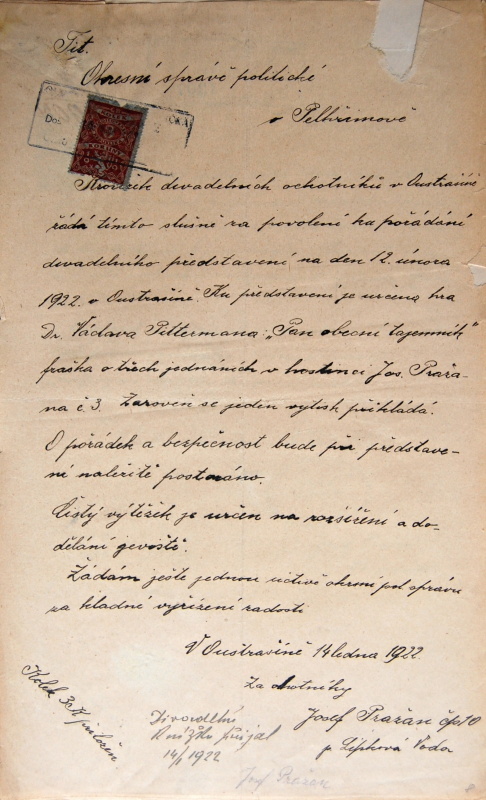 Tit.
Okresní správě politické
v Pelhřimově
Kroužek divadelních ochotníků v Oustrašíně
žádá tímto slušně za povolení ku pořádání
divadelního představení na den 12. února
1922. v Oustrašíně. Ku představení je určena hra
Dr. Václava Pittermana: „Pan obecní tajemník"
fraška o třech jednáních v hostinci Jos. Praža-
na č. 3. Zároveň se jeden výtisk přikládá.
O pořádek a bezpečnost bude při představe-
ní náležitě postaráno.
Čistý výtěžek je určen na rozšíření a do-
dělání jeviště.
Žádám ještě jednou uctivě okresní pol správu
za kladné vyřízení žádosti
V Oustrašíně 14 ledna 1922.
Za ochotníky
Josef Pražan čp 10
p. Líšková Voda
Kolek 3 K přiložen.
Divadelní
knížku přijal
14/1 1922
Josef Pražan